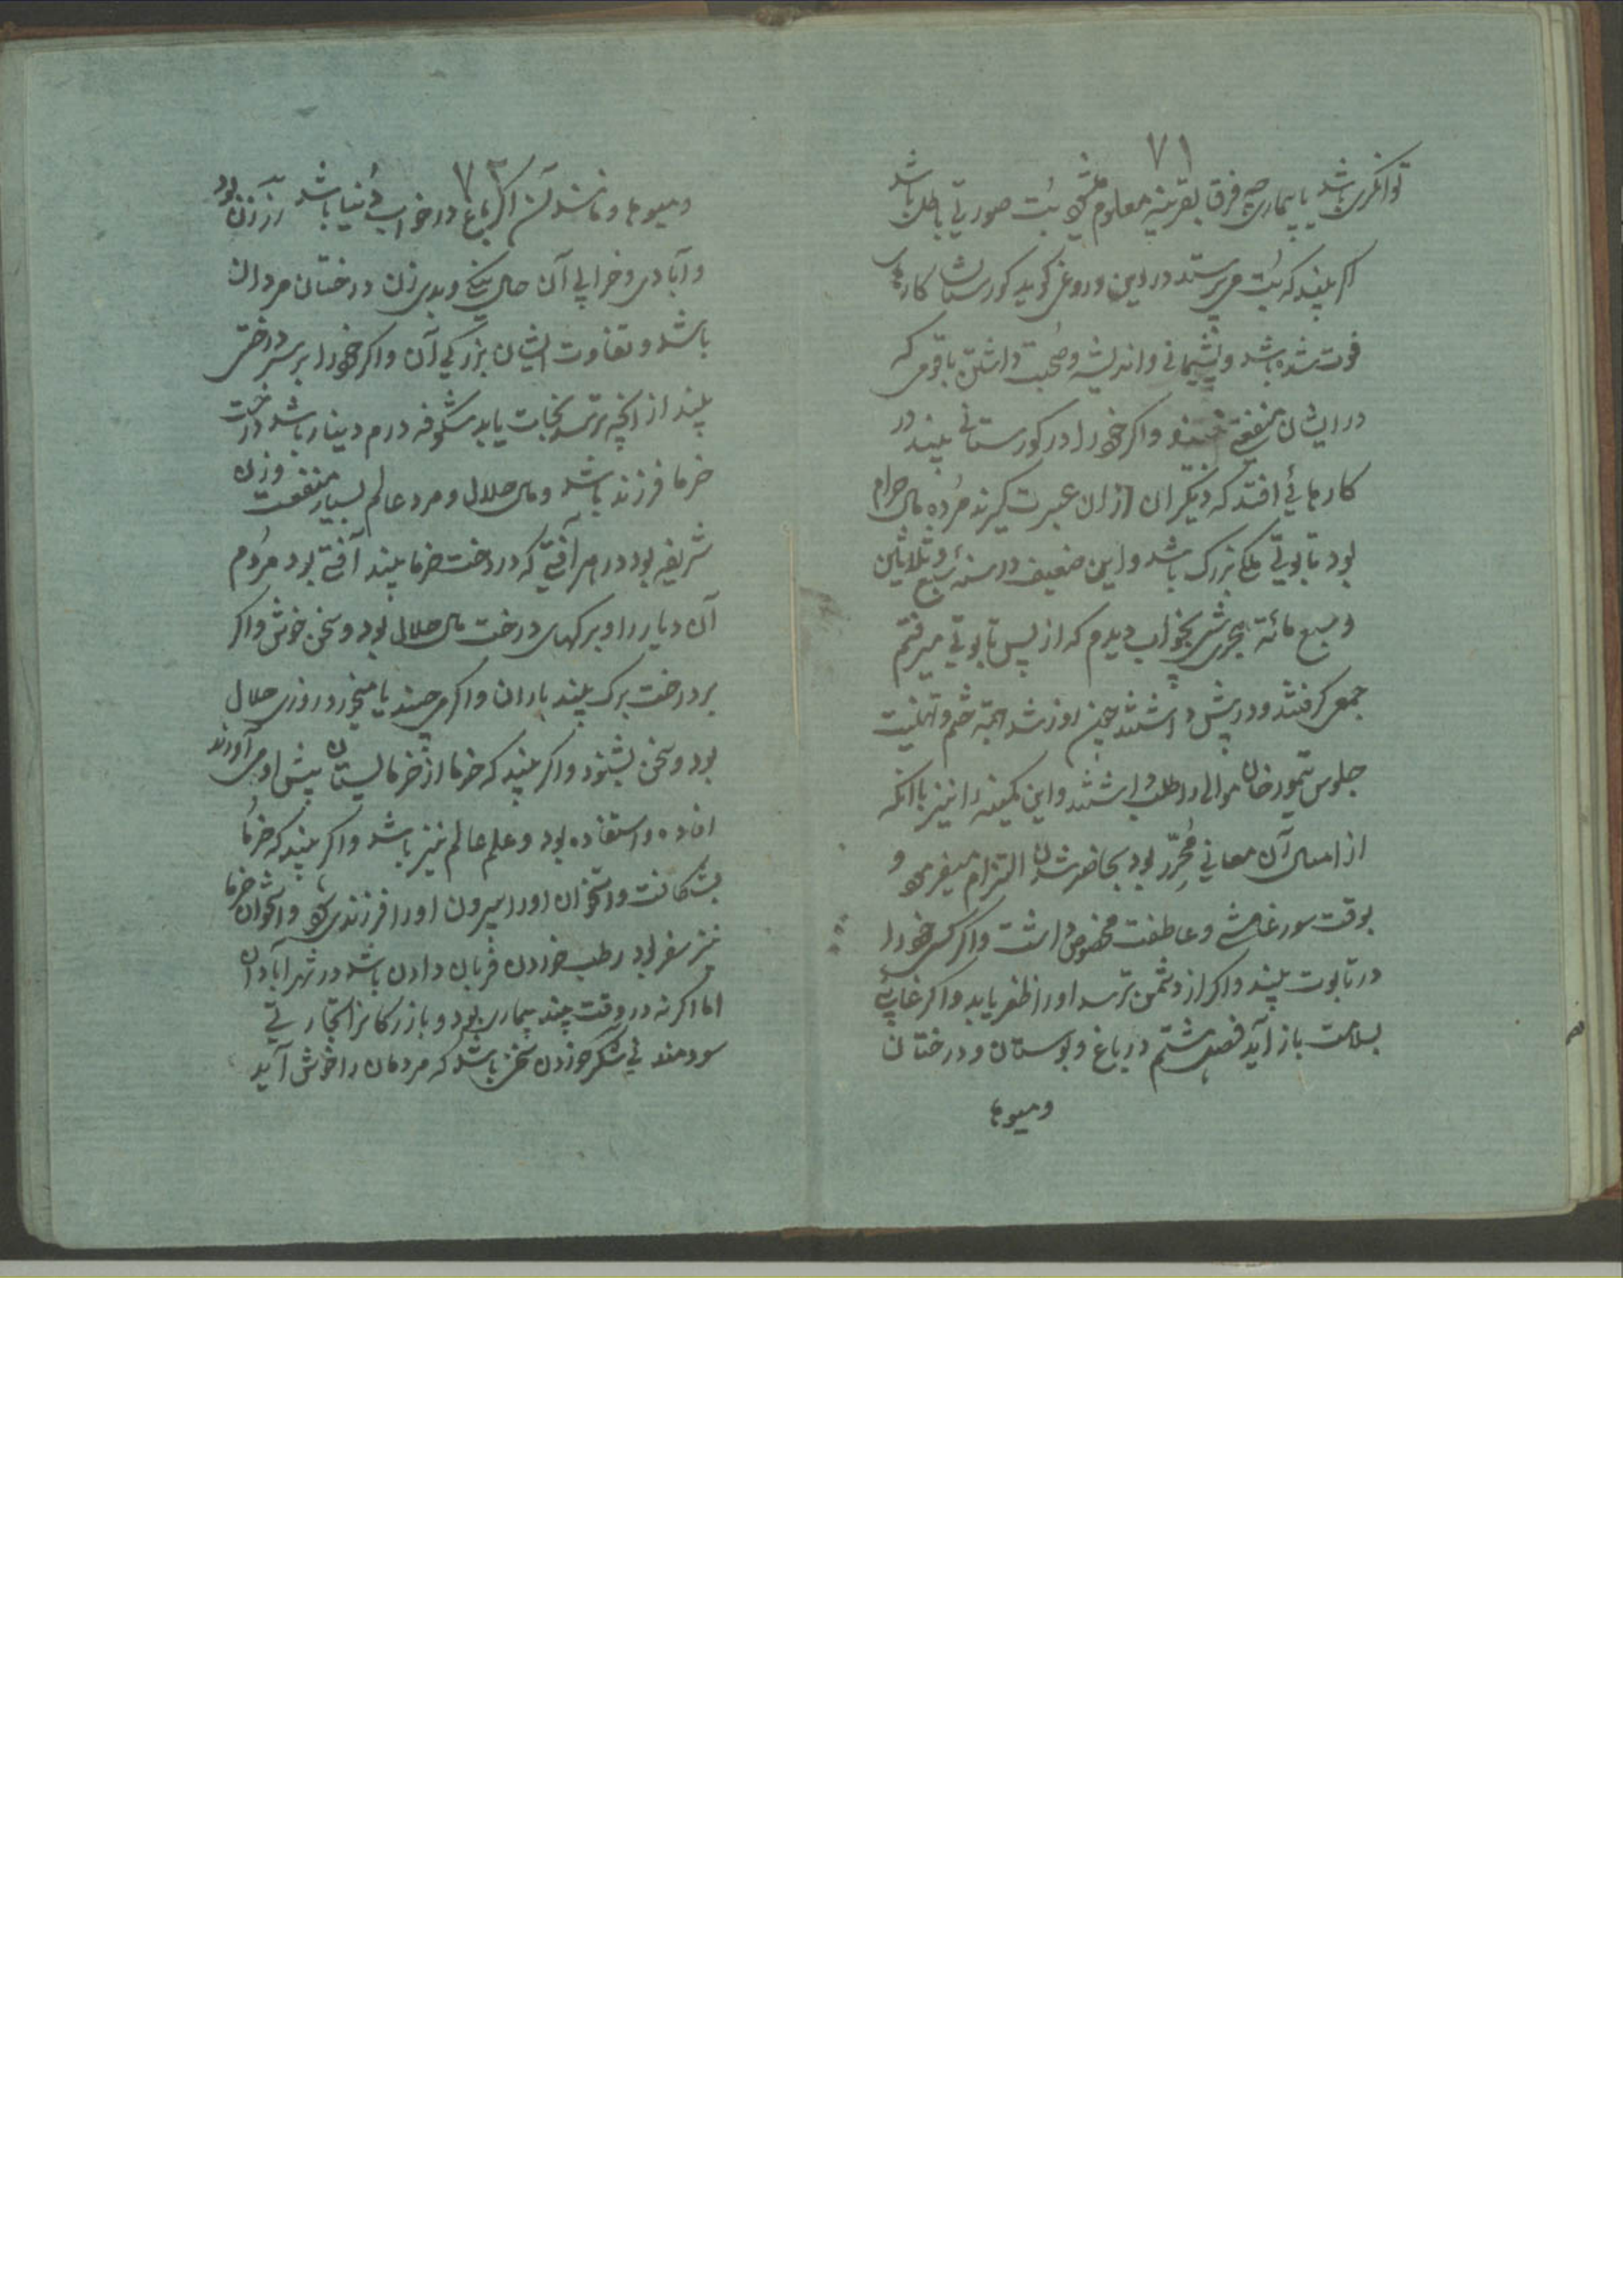 ۷۱
توانگری باشد یا بیماری چه فرق بقرینه معلوم میشود بت صورتی باطل باشد
اگر بیند که بت می پرستد در دین دروغ گوید کورستان کارهای
فوت شده باشد و پشیمانی و اندیشه و صحبت داشتن با قومی که
در ایشان منفعتی نبود و اگر خود را در کورستانی بیند در
کارهائی افتد که دیگران از ان عبرت گیرند مرده مال حرام
بود تابوت ملک بزرگ باشد و این ضعیف در سنه سبع و ثلاثین
و سبع مائة هجری شبی بخواب دیدم که از پس تابوتی میرفتم
جمعی گرفتند و در پیش داشتند چون روز شد جهة و تهنیت
جلوس تیمور خان موالی را طلب داشتند و این کمینه را نیز با آنکه
از امثال آن معانی محرز بود بحاضر شدن التزام میفرمود و
بوقت و عاطفت مخصوص داشت و اگر کسی خود را
در تابوت بیند و اگر از دشمن ترسد او را ظفر یابد و اگر غایبی بود
بسلامت باز آید فصل هشتم در باغ و بوستان و درختان
و میوها
۷۲
و میوها و مانند آن اگر باغ در خواب دنیا باشد رز زن بود
و آبادی و خرابی آن حال نیکی و بدی زن درختان مردان
باشد و تفاوت ایشان بزرگی آن و اگر خود را بر سر درختی
بیند از آنچه ترسد نجات یابد شکوفه درم و دینار باشد درخت
خرما فرزند باشد و مال حلال و مرد عالم بسیار منفعت و زن
شریفه بود در هر آفتی که در درخت خرما بیند آفتی بود مردم
آن دیار را و برگهای درخت مال حلال بود و سخن خوش و اگر
بر درخت برگ بیند باران و اگر می چیند یا میخورد روزی حلال
بود و سخن بشنود و اگر بیند که خرما از خرمایستان پیش او می آورند
افاده و استفاده بود و علم عالم نیز باشد و اگر بیند که خرما
بشکافت و استخوان او را بیرون اورا فرزندی بود و استخوان خرما
نیز سفر بود رطب خوردن قربان دادن باشد در شهر آبادان
اما اگر نه در وقت چیند بیماری بود و بازرگانرا تجارتی
سودمند نی شکر خوردن سخنی باشد که مردمان را خوش آید